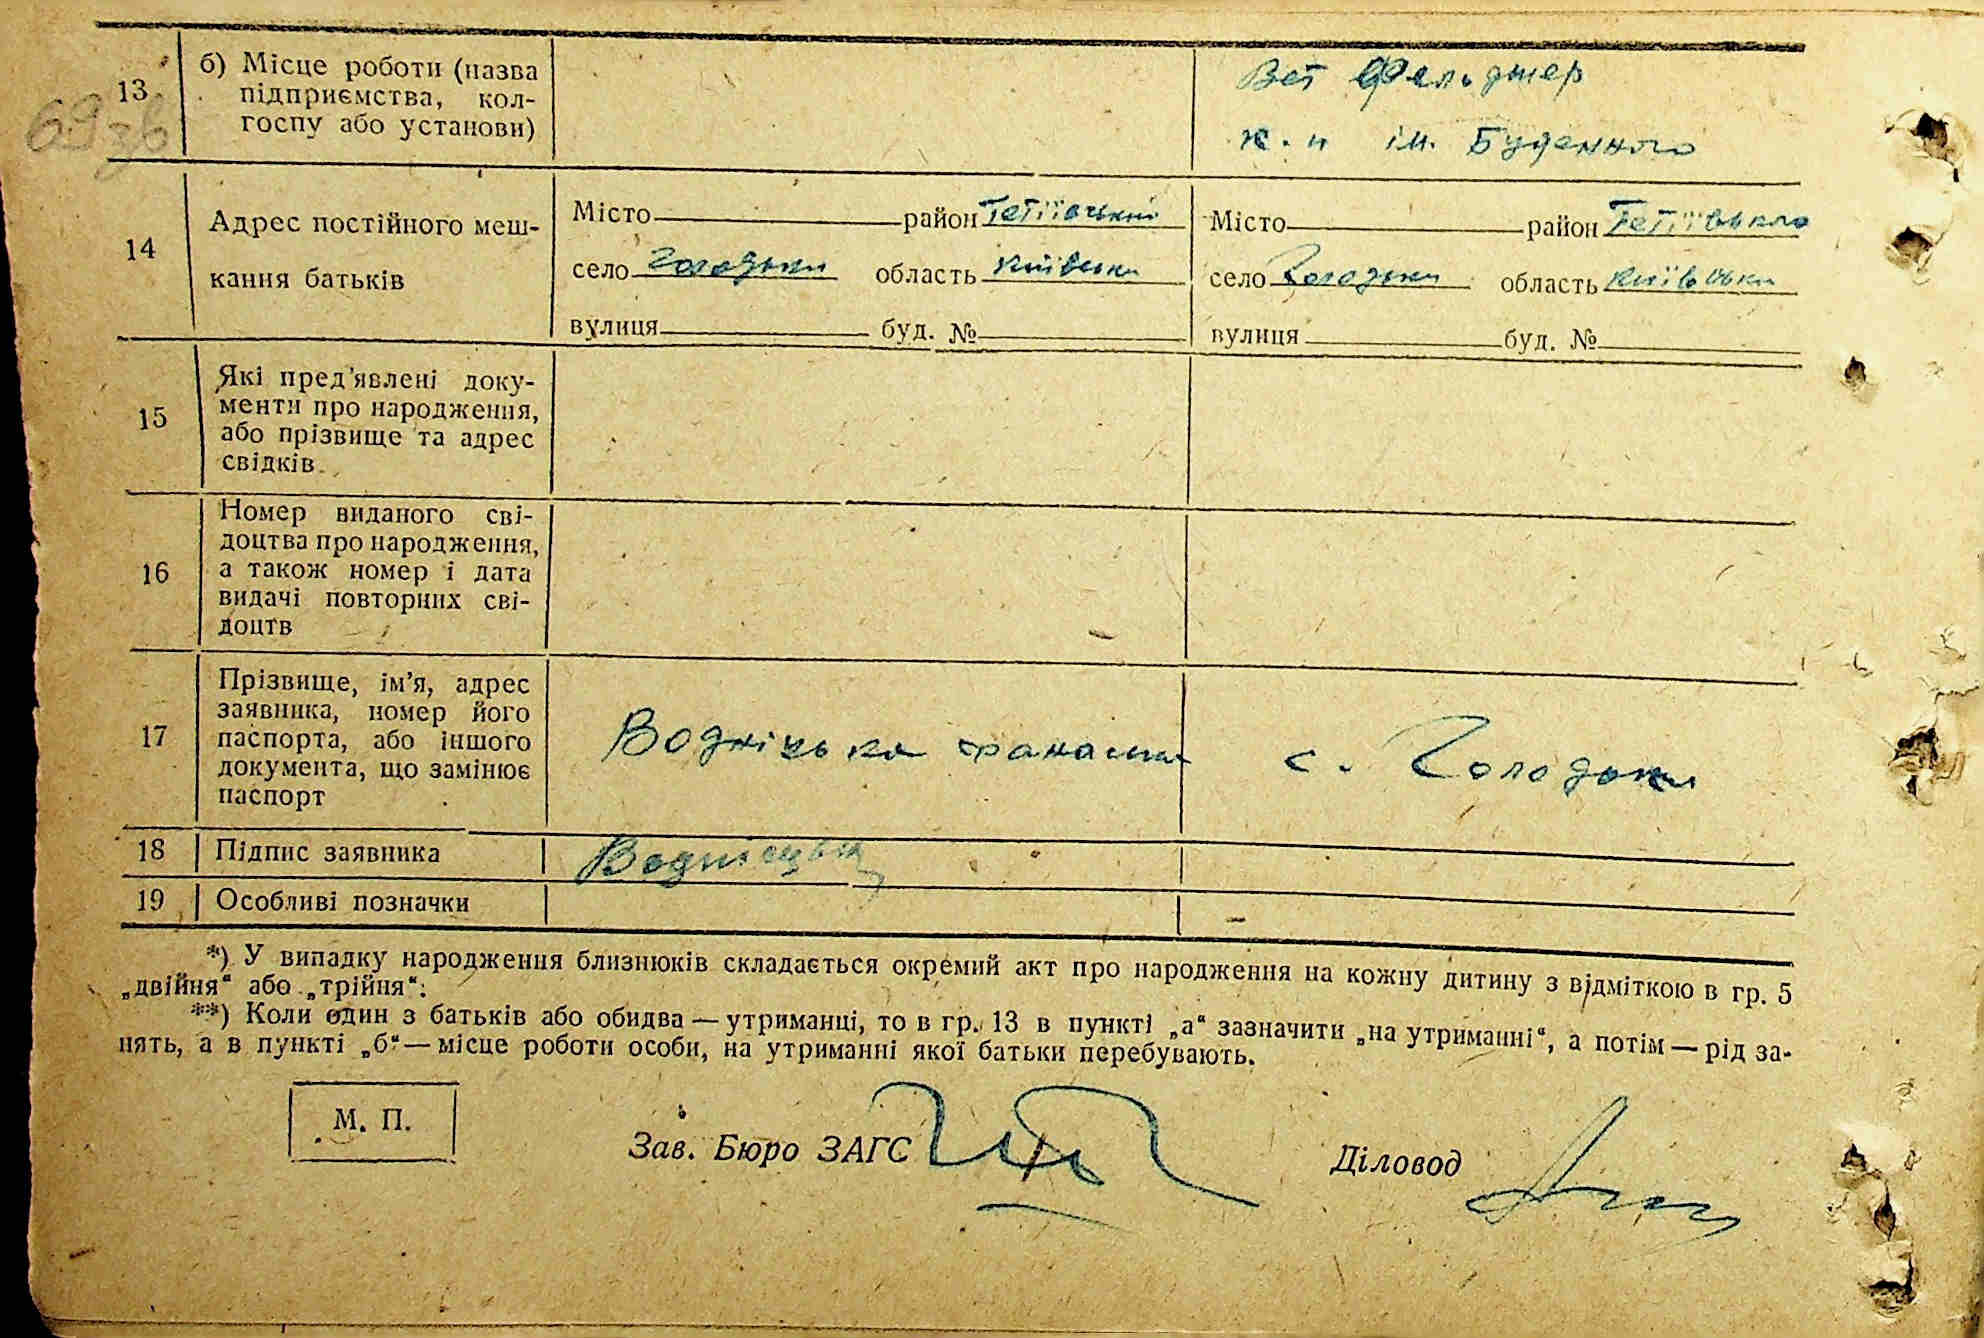 69 зв
13. б) Місце роботи (назва Вет Фельдшер
підприємства, кол-
госпу або установи) к. п ім. Буденного
14 Адрес постійного меш- Місто район Тетіївський Місто район Тетіївсько
кання батьків село Голодьки область Київськи село Голодьки область Київськи
вулиця буд. № вулиця буд. №
15 Які пред'явлені доку-
менти про народження,
або прізвище та адрес
свідків.
16 Номер виданого сві-
доцтва про народження,
а також номер і дата
видачі повторних сві-
доцтв
17 Прізвище, ім'я, адрес
заявника, номер його
паспорта, або іншого Водніцька с. Голодьки
документа, що замінює
паспорт
18 Підпис заявника
19 Особливі позначки
*) У випадку народження близнюків складається окремий акт про народження на кожну дитину з відміткою в гр. 5
„двійня“ або „трійня“:
**) Коли один з батьків або обидва — утриманці, то в гр. 13 в пункті „а“ зазначити „на утриманні“, а потім — рід за-
нять, а в пункті „б“ — місце роботи особи, на утриманні якої батьки перебувають.
М. П.
Зав. Бюро ЗАГС Діловод